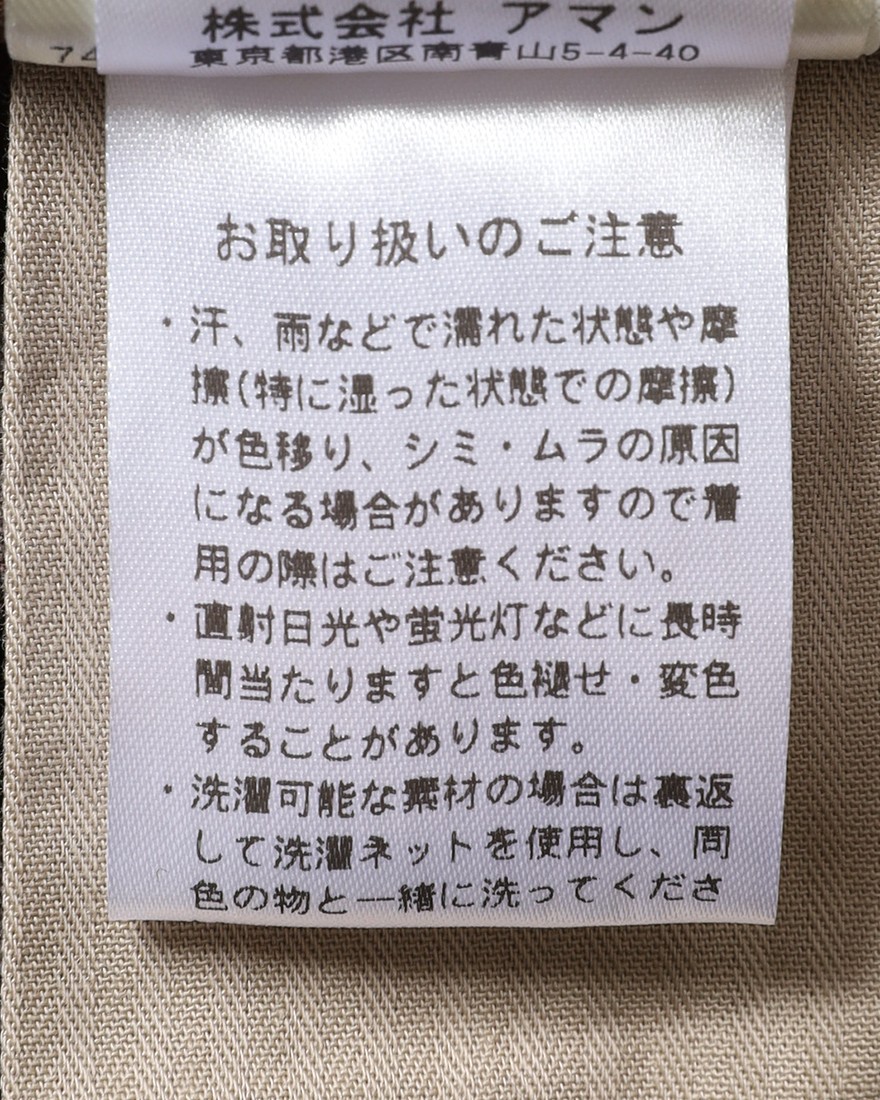 株式会社 アマン
74
東京都港区南青山5-4-40
お取り扱いのご注意
・汗、雨などで濡れた状態や摩
擦(特に湿った状態での摩擦)
が色移り、シミ・ムラの原因
になる場合がありますので着
用の際はご注意ください。
・直射日光や蛍光灯などに長時
間当たりますと色褪せ・変色
することがあります。
・洗濯可能な素材の場合は裏返
して洗濯ネットを使用し、同
色の物と一緒に洗ってくださ